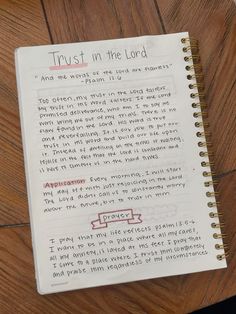 Trust in the Lord
"And the words of the Lord are flawless"
- Psalm 12:6
Too often, my trust in the Lord falters.
my trust in His word falters. If He
promised deliverance, who am I to say He
won't bring me out of my trials. There is no
flaw found in the Lord. His Word is true
and neverfailing. It is our job to put our
trust in His word and build our life upon
it. Instead of dwelling in the trials of today,
rejoice in the fact that the Lord is unfailing and
is here in times in the hard times.
Application: Every morning, I will start
my day off with just rejoicing in the Lord.
The Lord didn't call us to constantly worry
about the future, but to trust in Him.
prayer
I pray that my life reflects psalm 13:5-6.
I want to be in a place where all my cares,
all my anxiety, is layed at His feet. I pray that
I come to a place where I trust Him completely
and praise Him regardless of my circumstances